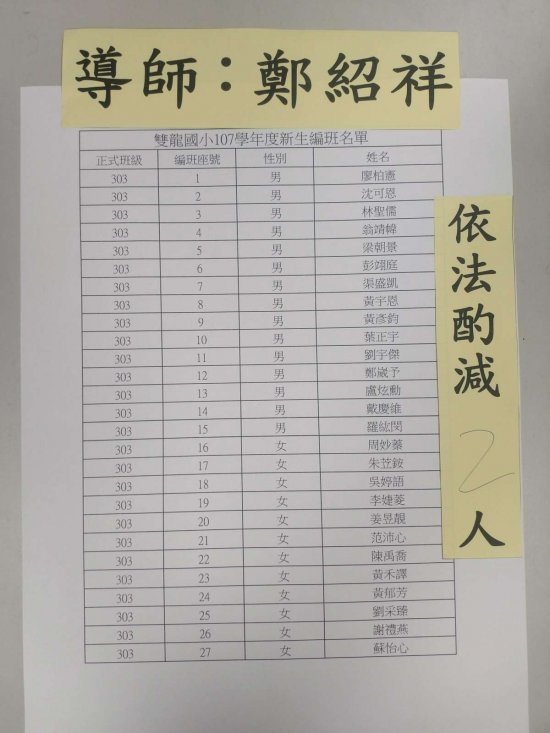 導師：鄭紹祥
雙龍國小107學年度新生編班名單
正式班級 編班座號 性別 姓名
303 1 男 廖柏憲
303 2 男 沈可恩
303 3 男 林聖儒
303 4 男 翁靖幃
303 5 男 梁朝景
303 6 男 彭翊庭
303 7 男 渠盛凱
303 8 男 黃宇恩
303 9 男 黃彥鈞
303 10 男 葉正宇
303 11 男 劉宇傑
303 12 男 鄭崴予
303 13 男 盧炫勳
303 14 男 戴慶維
303 15 男 羅紘閔
303 16 女 周妙蓁
303 17 女 朱苙銨
303 18 女 吳婷語
303 19 女 李婕菱
303 20 女 姜昱靚
303 21 女 范沛心
303 22 女 陳禹喬
303 23 女 黃禾譯
303 24 女 黃郁芳
303 25 女 劉采臻
303 26 女 謝禮燕
303 27 女 蘇怡心
依法酌減2人